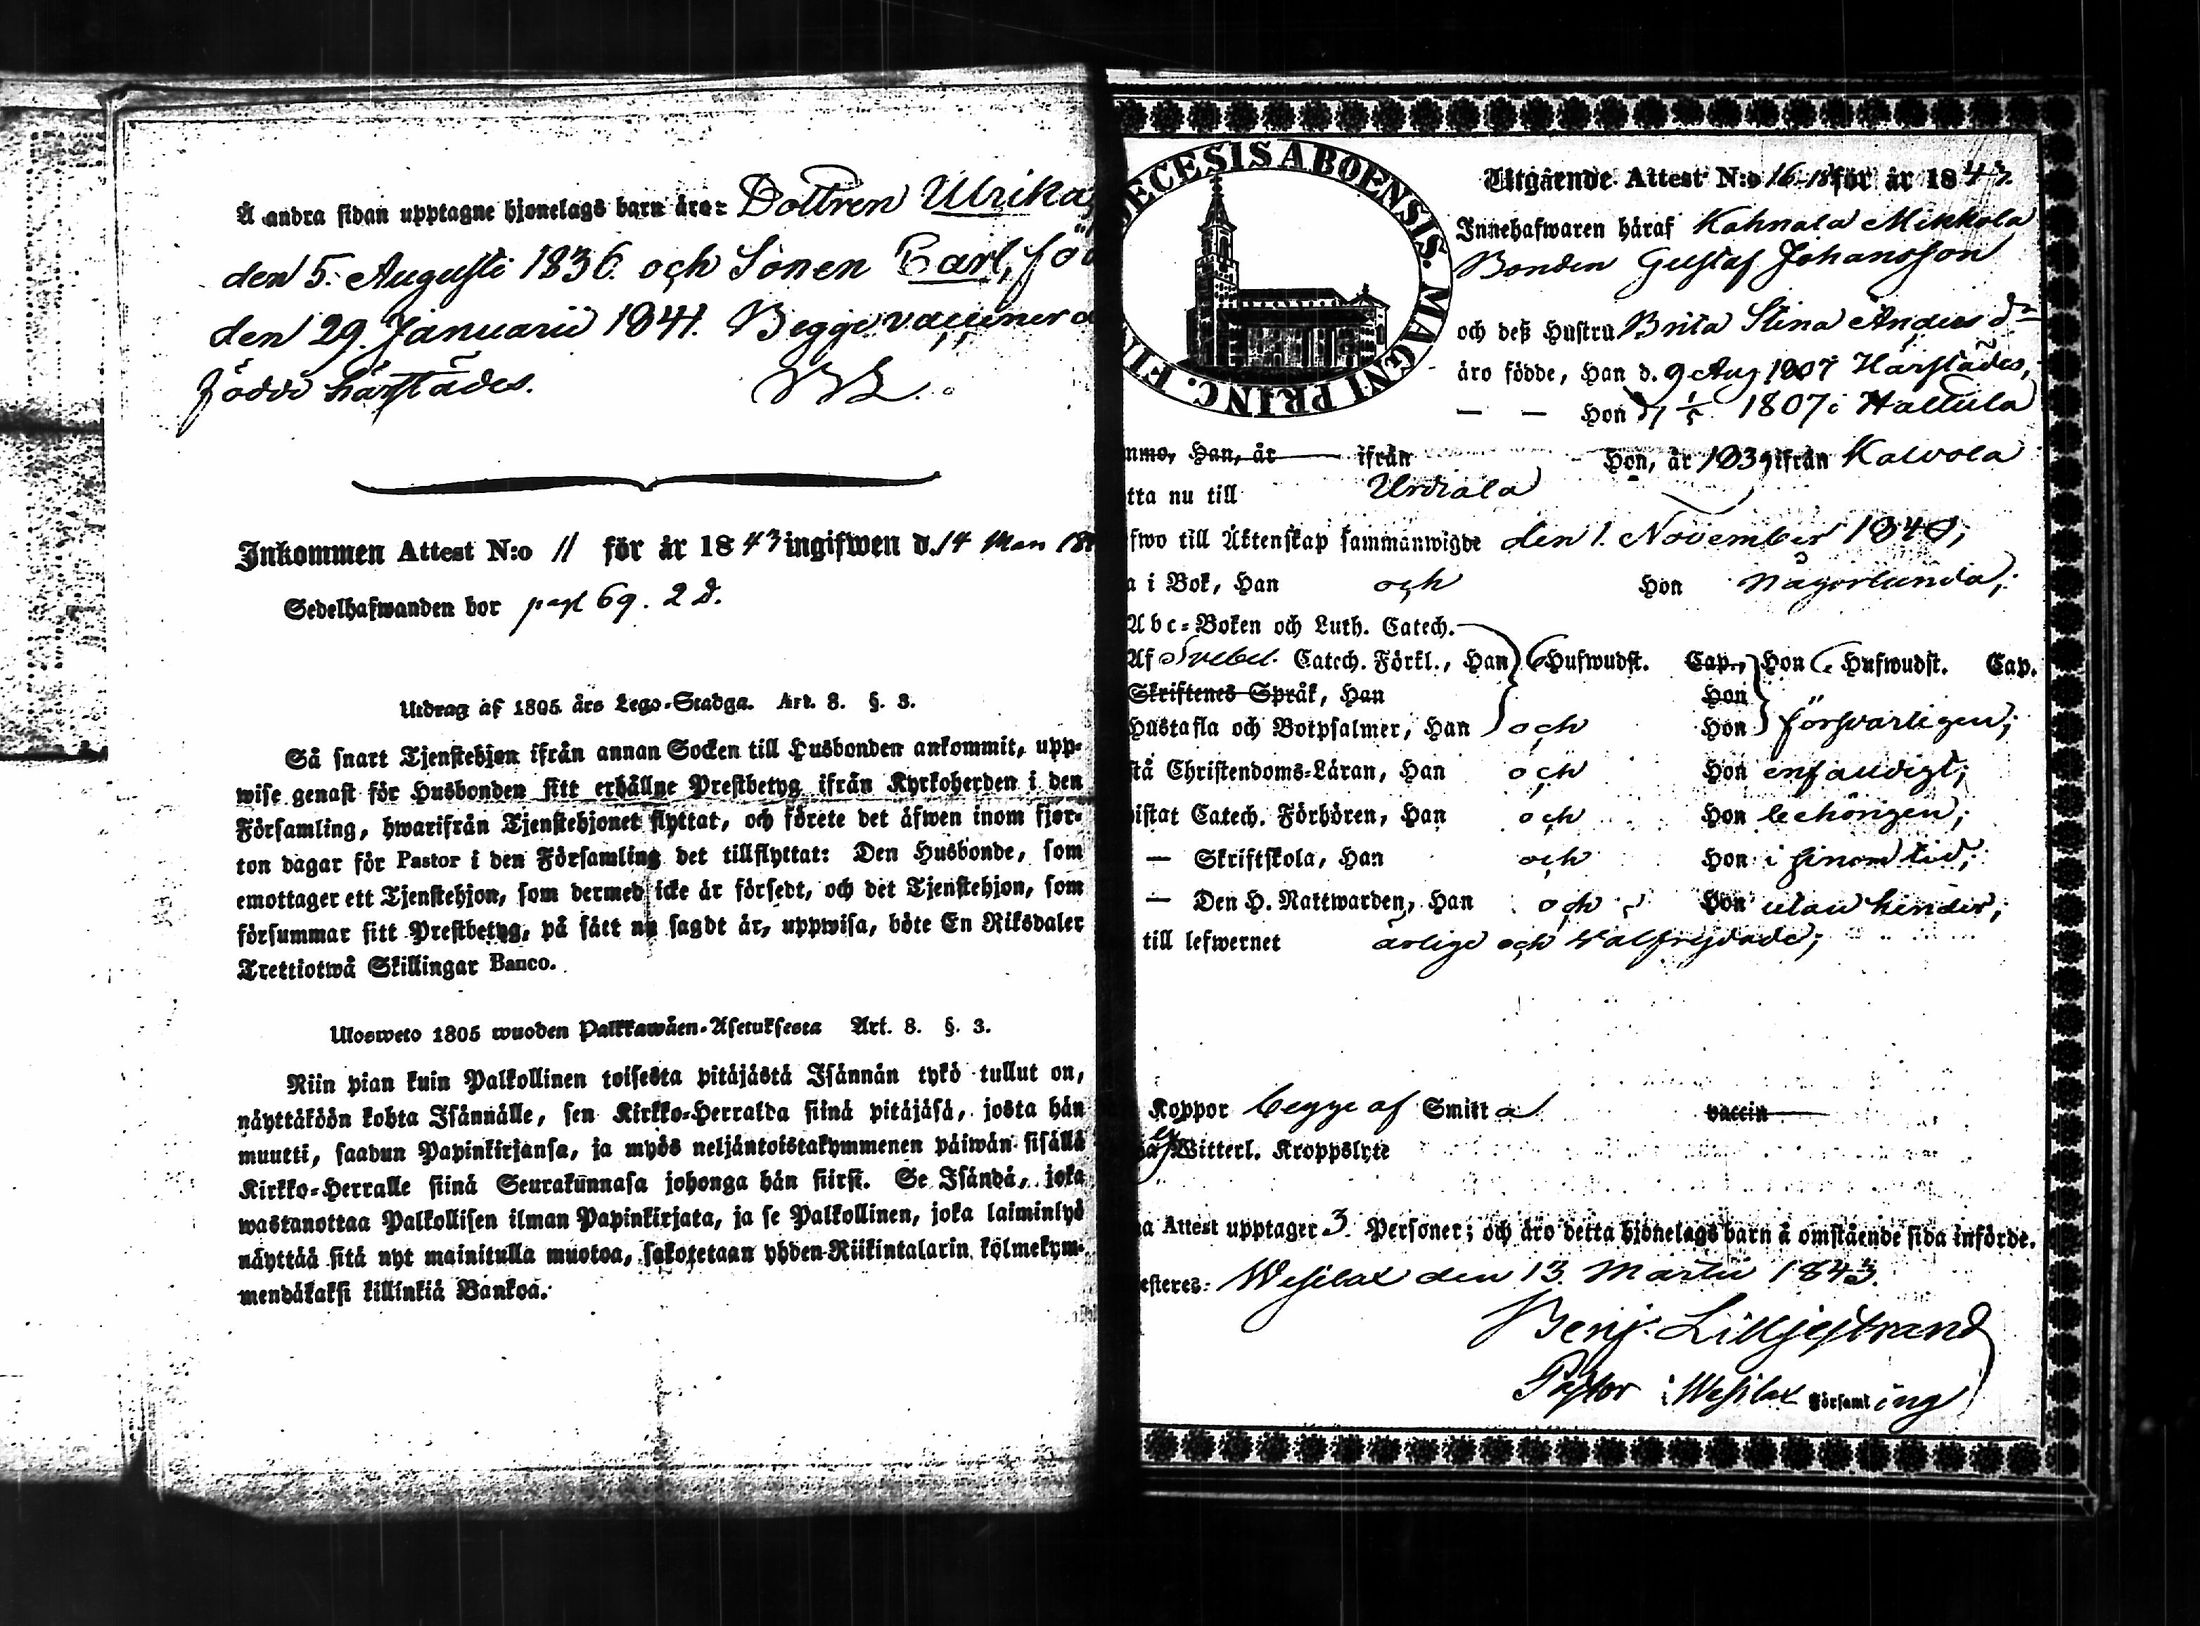 Å andra sidan upptagne hjonelags barn äro: Dottren Ulrika,
den 5. Augusti 1836. och Sonen Carl, fö
den 29. Januarii 1841. Begge vaccinera
födde härstädes. BL.
Inkommen Attest N:o 11 för år 1843 ingifwen d. 14 Mars 18
Sedelhafwanden bor pag 69. 2 d.
Utdrag af 1805 års Lego-Stadga. Art. 8. §. 3.
Så snart Tjenstehjon ifrån annan Socken till Husbonden ankommit, upp-
wise genast för Husbonden sitt erhållne Prestbetyg ifrån Kyrkoherden i den
Församling, hwarifrån Tjenstehjonet flyttat, och förete det äfwen inom fjor-
ton dagar för Pastor i den Församling det tillflyttat: Den Husbonde, som
emottager ett Tjenstehjon, som dermed icke är försedt, och det Tjenstehjon, som
försummar sitt Prestbetyg, på sätt nu sagdt är, uppwisa, böte En Riksdaler
Trettiotwå Skillingar Banco.
Ulosweto 1805 wuoden Palkkawäen-Asetuksesta Art. 8. §. 3.
Niin pian kuin Palkollinen toisesta pitäjästä Isännän tykö tullut on,
näyttäköön kohta Isännälle, sen Kirkko-Herralda siinä pitäjäsä, josta hän
muutti, saadun Papinkirjansa, ja myös neljäntoistakymmenen päiwän sisällä
Kirkko-Herralle siinä Seurakunnasa johonga hän siirsi. Se Isändä, joka
wastanottaa Palkollisen ilman Papinkirjata, ja se Palkollinen, joka laiminlyö
näyttää sitä nyt mainitulla muotoa, sakotetaan yhden Riikintalarin kolmekym-
mendäkaksi killinkiä Bankoa.
DECESIS ABOENSIS. MAGNI PRINC. FIN
Utgående Attest N:o 16 för år 1843.
Innehafwaren häraf Kahnala Mikkola
Bonden Gustaf Johansson
och deß Hustru Brita Stina Anders dr
äro födde, Han d. 9 Aug 1807 Härstädes,
— — Hon d. 1/5 1807 i Hattula
mmo, Han, år ifrån Hon, år 1839 ifrån Kalvola
tta nu till Urdiala
fwo till Äktenskap sammanwigde den 1. November 1840;
a i Bok, Han och Hon någorlunda;
Abc-Boken och Luth. Catech.
Af Svebel. Catech. Förkl., Han 6 Hufwudst. Cap., Hon 6 Hufwudst. Cap.
Skriftenes Språk, Han Hon
Hustafla och Botpsalmer, Han och Hon försvarligen;
stå Christendoms-Läran, Han och Hon enfaldigt;
istat Catech. Förhören, Han och Hon behörigen;
— Skriftskola, Han och Hon i sinom tid;
— Den H. Nattwarden, Han och Hon utan hinder;
till lefwernet ärlige och välfrejdade;
Koppor begge af Smitta vaccin
ej Witterl. Kroppslyte
na Attest upptager 3. Personer; och äro detta hjonelags barn å omstående sida införde.
esteres: Wesilax den 13. Martii 1843.
Benj. Lilljestrand
Pastor i Wesilax Församling